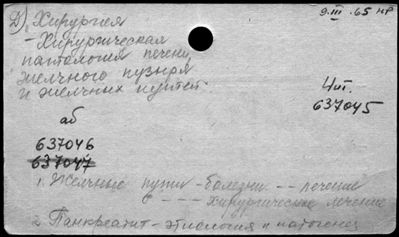 Д) Хирургия
9.III.65 НР
- Хирургическая
патология печени,
желчного пузыря
и желчных путей
Чит.
637045
аб
637046
637047
1. Желчные пути - болезни -- лечение
---- хирургическое лечение
2. Панкреатит - этиология и патогенез